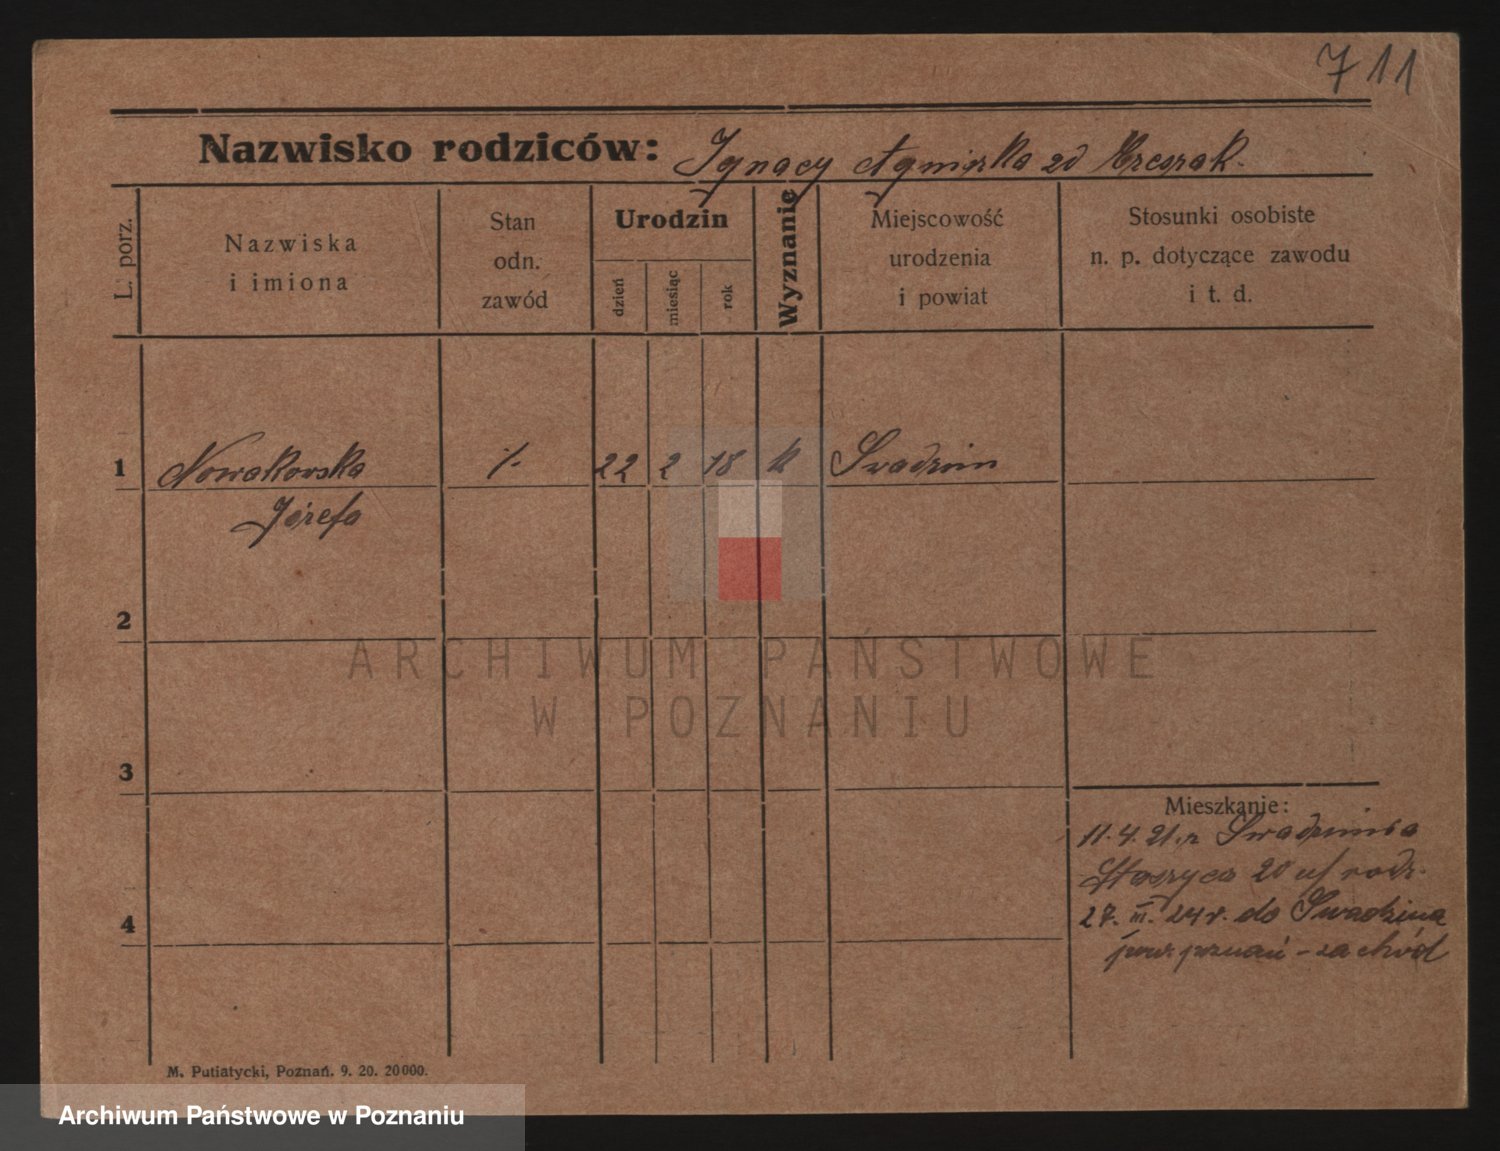 711
Nazwisko rodziców: Ignacy Agnieszka zd
L. porz.
Nazwiska
i imiona
Stan
odn.
zawód
Urodzin
dzień
miesiąc
rok
Wyznanie
Miejscowość
urodzenia
i powiat
Stosunki osobiste
n. p. dotyczące zawodu
i t. d.
1 Nowakowska 22 2 18 k Swadzim
Józefa
2
3
4
Mieszkanie:
11. 4. 21. z Swadzimia
Staszyca 20 u/ rodz.
27. III. 24 r. do Swadzima
pow. poznań - zachód
M. Putiatycki, Poznań. 9. 20. 20000.
ARCHIWUM PAŃSTWOWE
W POZNANIU
Archiwum Państwowe w Poznaniu